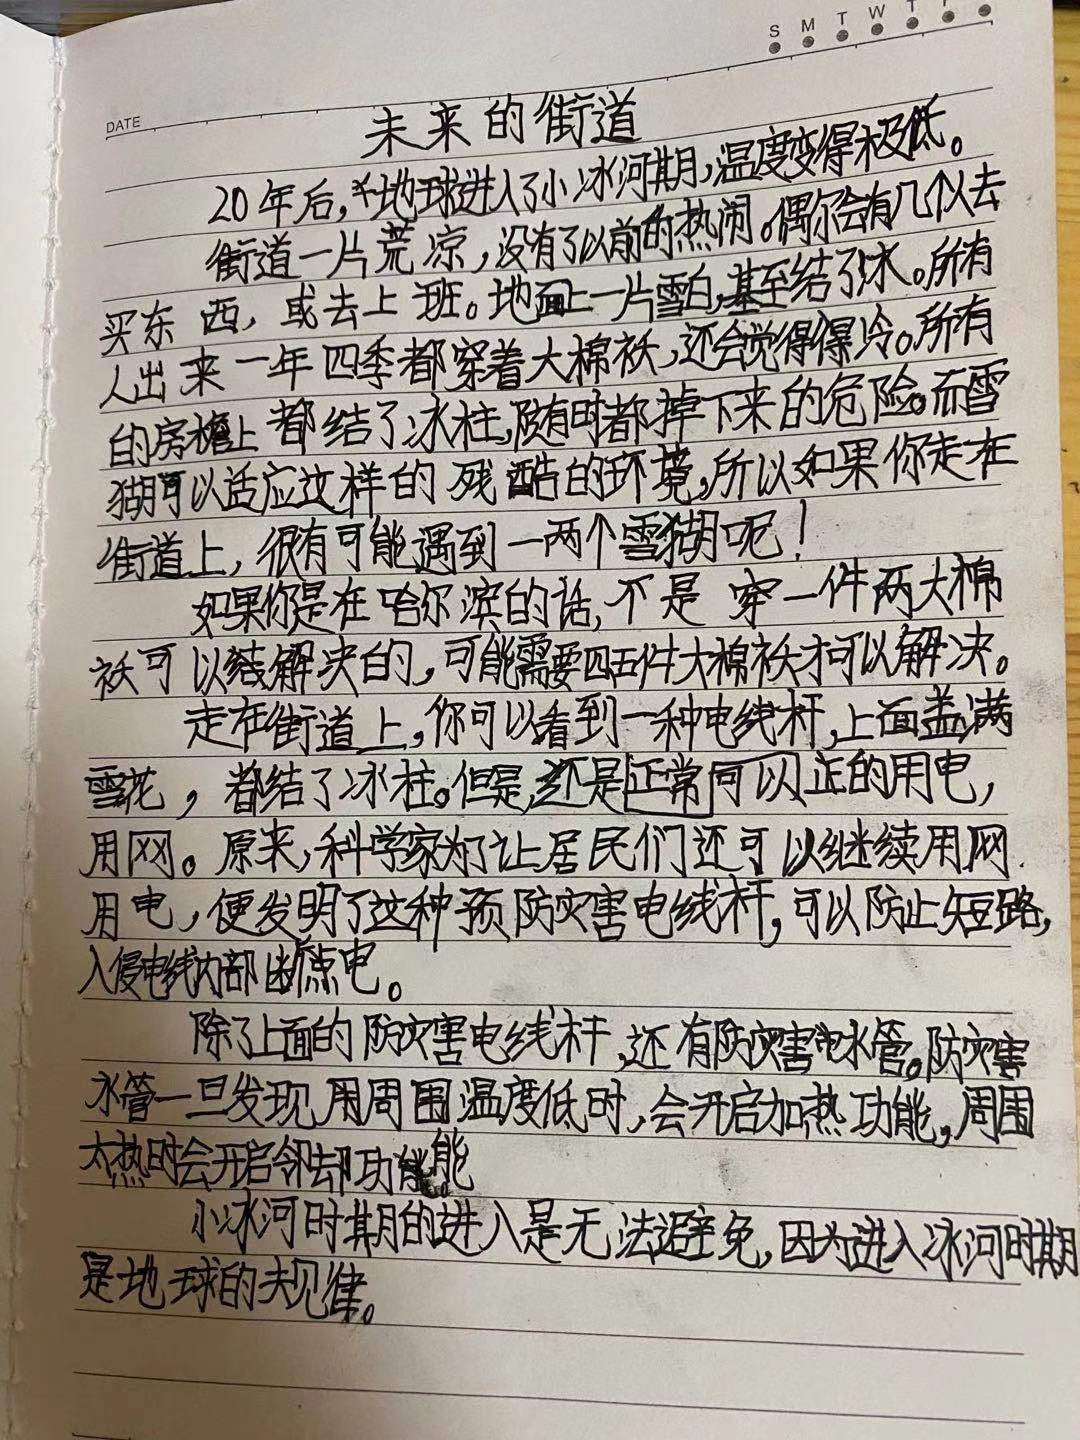 S M T W T F
DATE
未来的街道
20年后,地球进入了小冰河期,温度变得极低。
街道一片荒凉,没有了以前的热闹。偶尔会有几个人去
买东西,或去上班。地面上一片雪白,甚至结了冰。所有
人出来一年四季都穿着大棉袄,还会觉得得冷。所有
的房檐上都结了冰柱,随有时都掉下来的危险。而雪
猢可以适应这样的残酷的环境,所以如果你走在
街道上,很有可能遇到一两个雪猢呢!
如果你是在哈尔滨的话,不是穿一件两大棉
袄可以解决的,可能需要四五件大棉袄才可以解决。
走在街道上,你可以看到一种电线杆,上面盖满
雪花,都结了冰柱。但是,还是正常可以正的用电,
用网。原来,科学家为了让居民们还可以继续用网
用电,便发明了这种预防灾害电线杆,可以防止短路,
入侵电线内部断电。
除了上面的防灾害电线杆,还有防灾害水管。防灾害
水管一旦发现周围温度低时,会开启加热功能,周围
太热时会开启冷却功能
小冰河时期的进入是无法避免,因为进入冰河时期
是地球的规律。